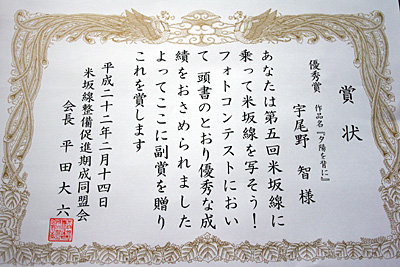 賞状
優秀賞 作品名『夕陽を背に』
宇尾野 智 様
あなたは第五回米坂線に
乗って米坂線を写そう！
フォトコンテストにおい
て 頭書のとおり優秀な成
績をおさめられました
よってここに副賞を贈り
これを賞します
平成二十二年二月十四日
米坂線整備促進期成同盟会
会長 平田大六